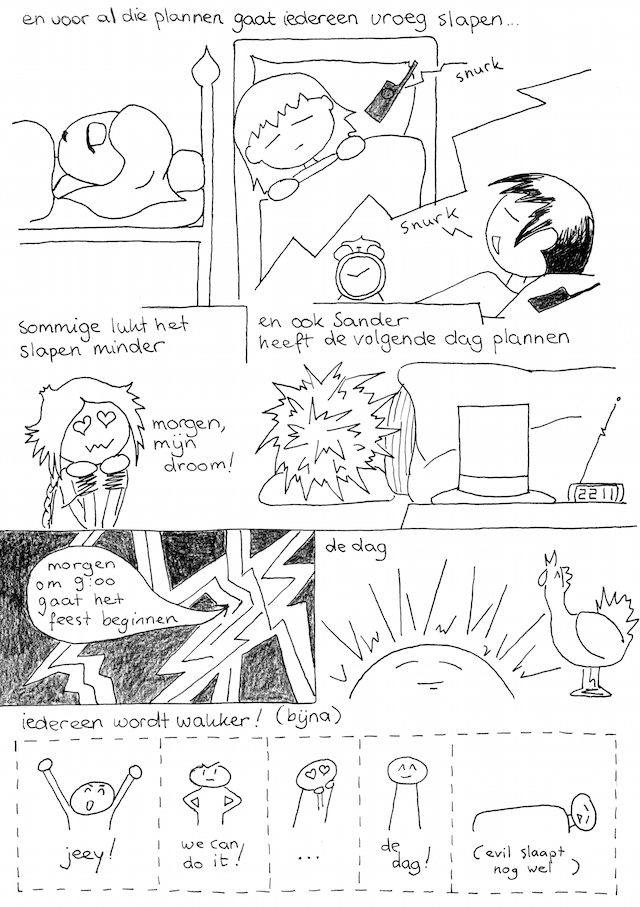 en voor al die plannen gaat iedereen vroeg slapen...
snurk
snurk
sommige lukt het
slapen minder
en ook Sander
heeft de volgende dag plannen
morgen,
mijn
droom!
22 11
morgen
om 9:00
gaat het
feest beginnen
de dag
iedereen wordt wakker! (bijna)
jeey!
we can
do it!
...
de
dag!
(evil slaapt
nog wel)